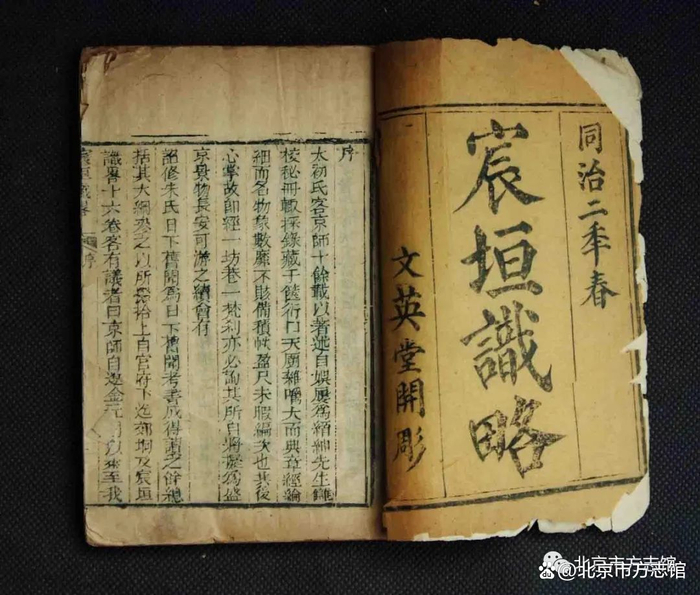 同治二秊春
宸垣識略
文英堂開彫
序
太初氏客京師十餘載以著述自娛屢爲縉紳先生讎
校秘冊輒採綠藏于篋衍大而典章經論
細而名物象數靡不賅備積帙盈尺未暇編次也其後
心掌故即經一坊巷一梵刹亦必詢其所自將彙爲盛
京畏物長安可游之續會有
詔修朱氏日下舊聞爲日下舊聞考書成得讀之餘總
括其大綱參之以所上自官府下迄郊坰及宸垣
識畧十六卷客有議者曰京師自遼金元明以來至我
宸垣識畧 序
北京市方志馆
@北京市方志馆